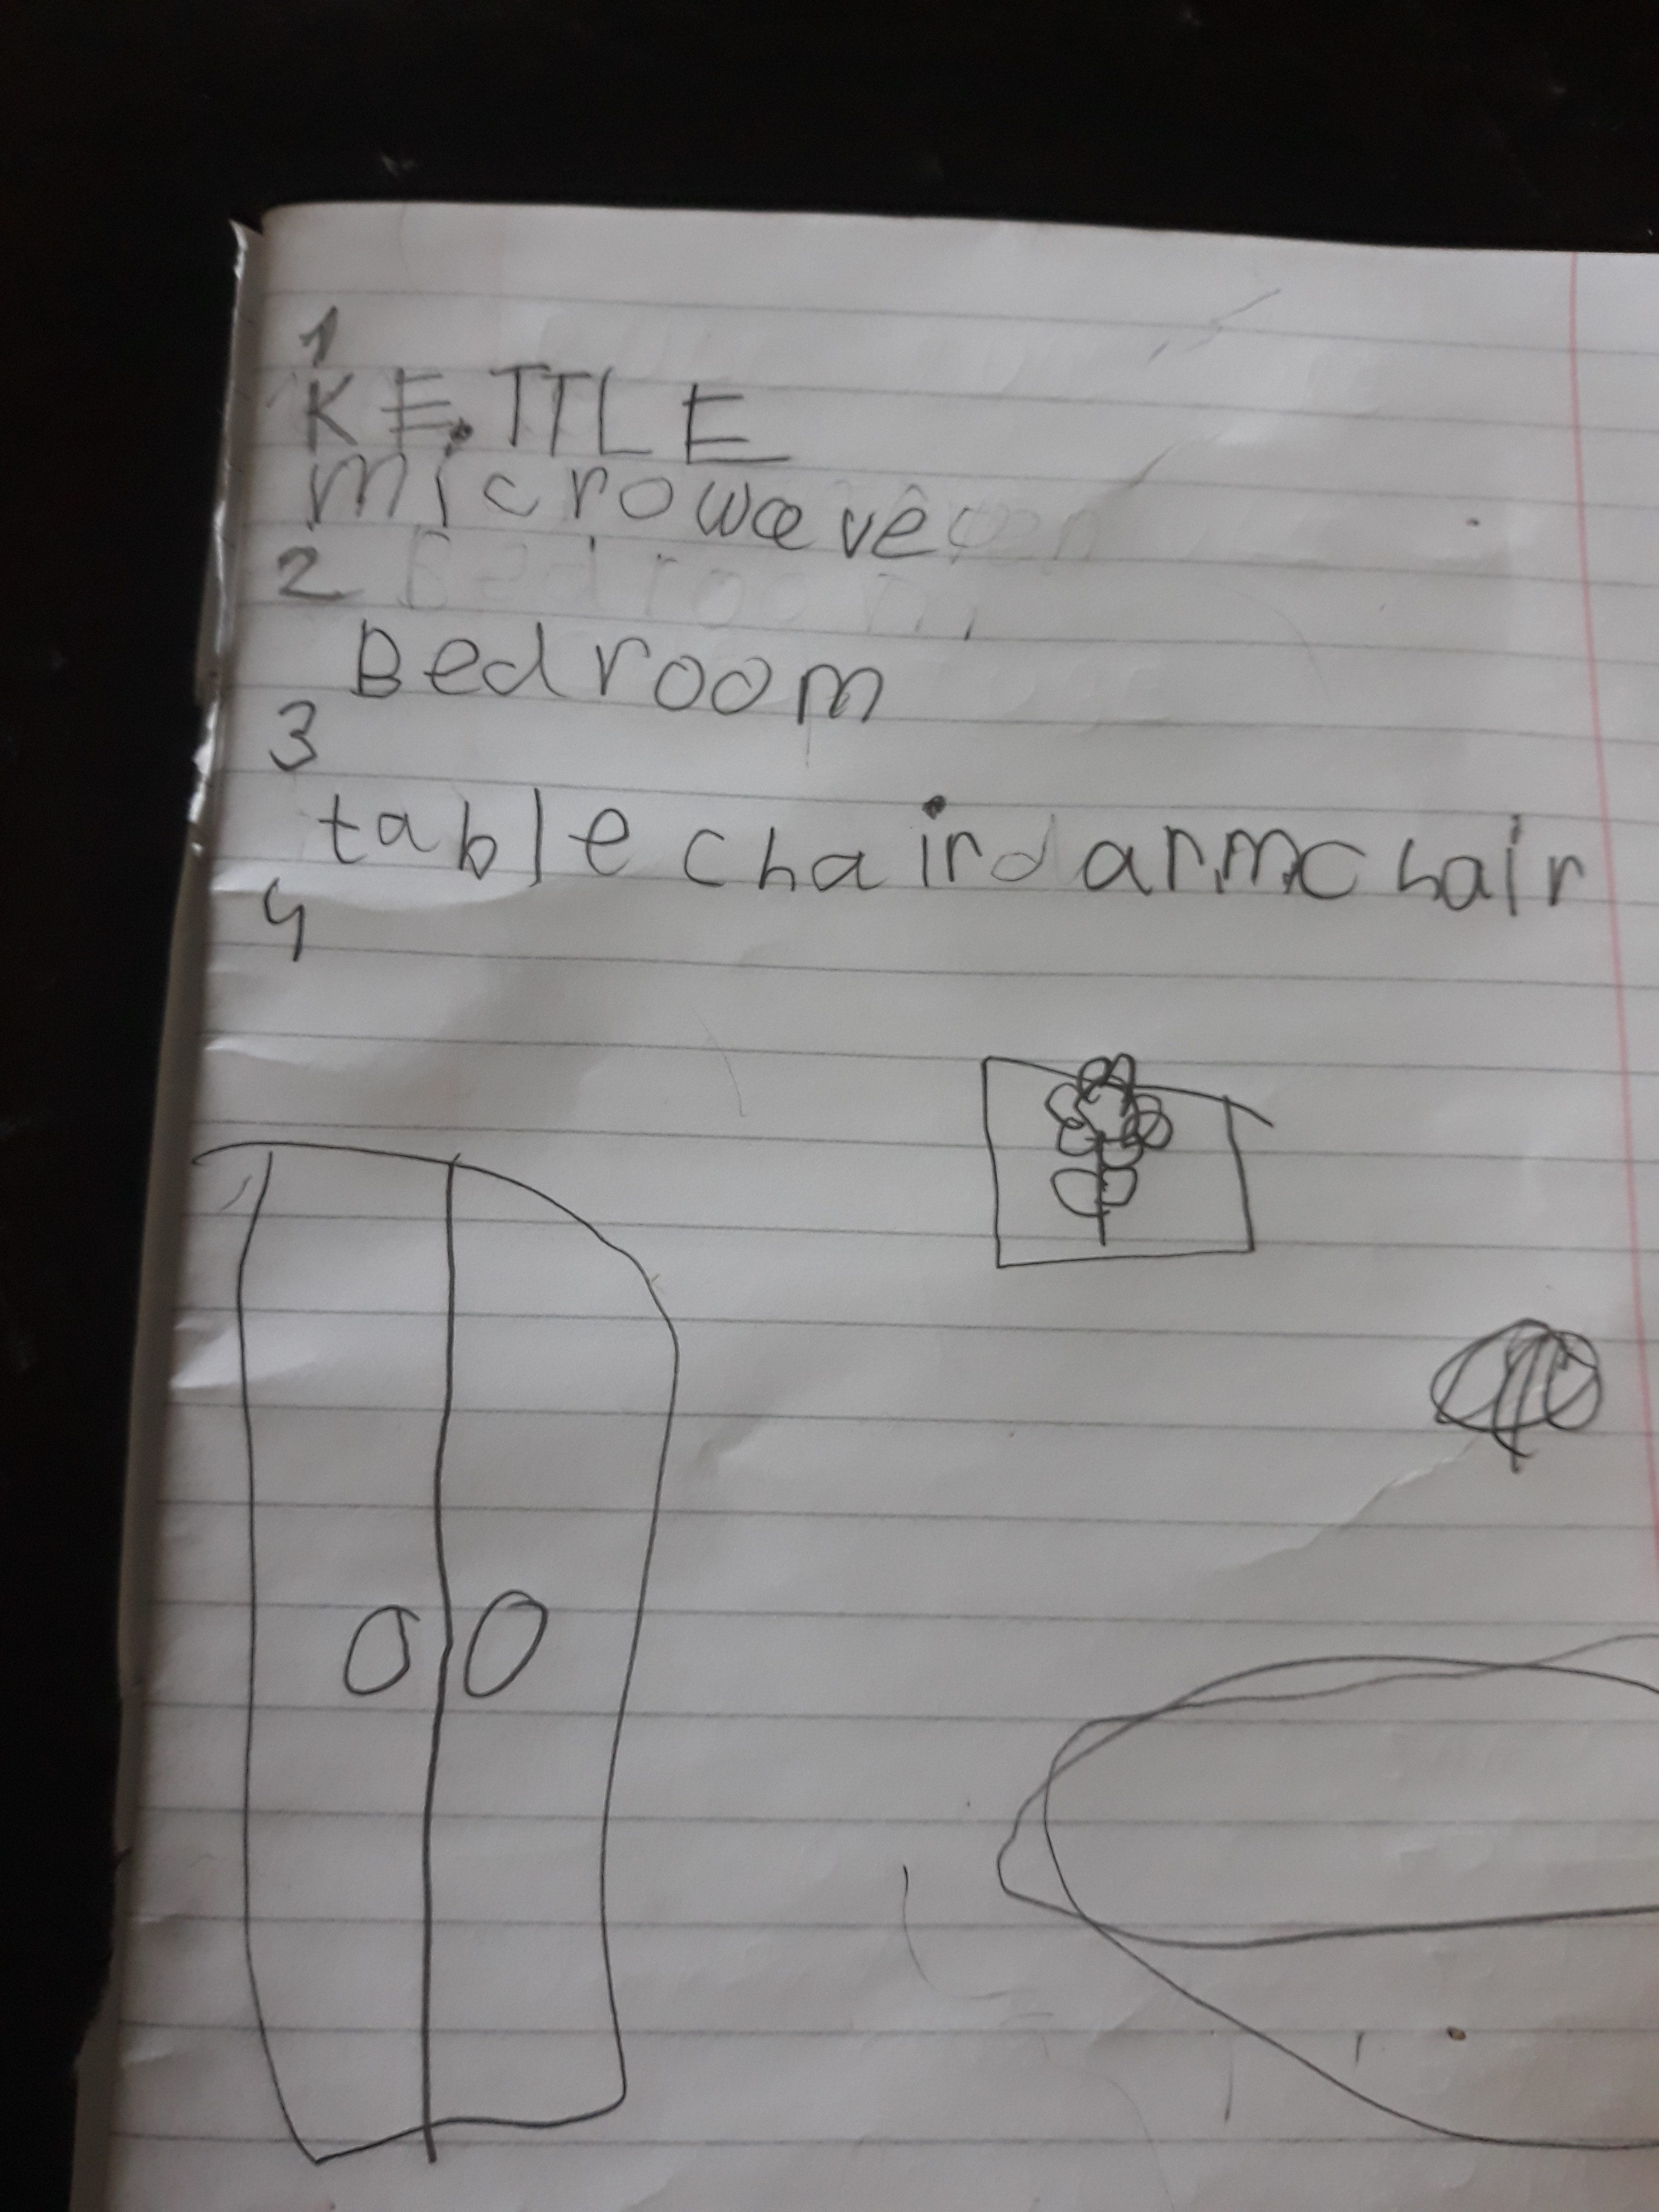 1
KETTLE
microwave
2
Bedroom
3
table chair armchair
4